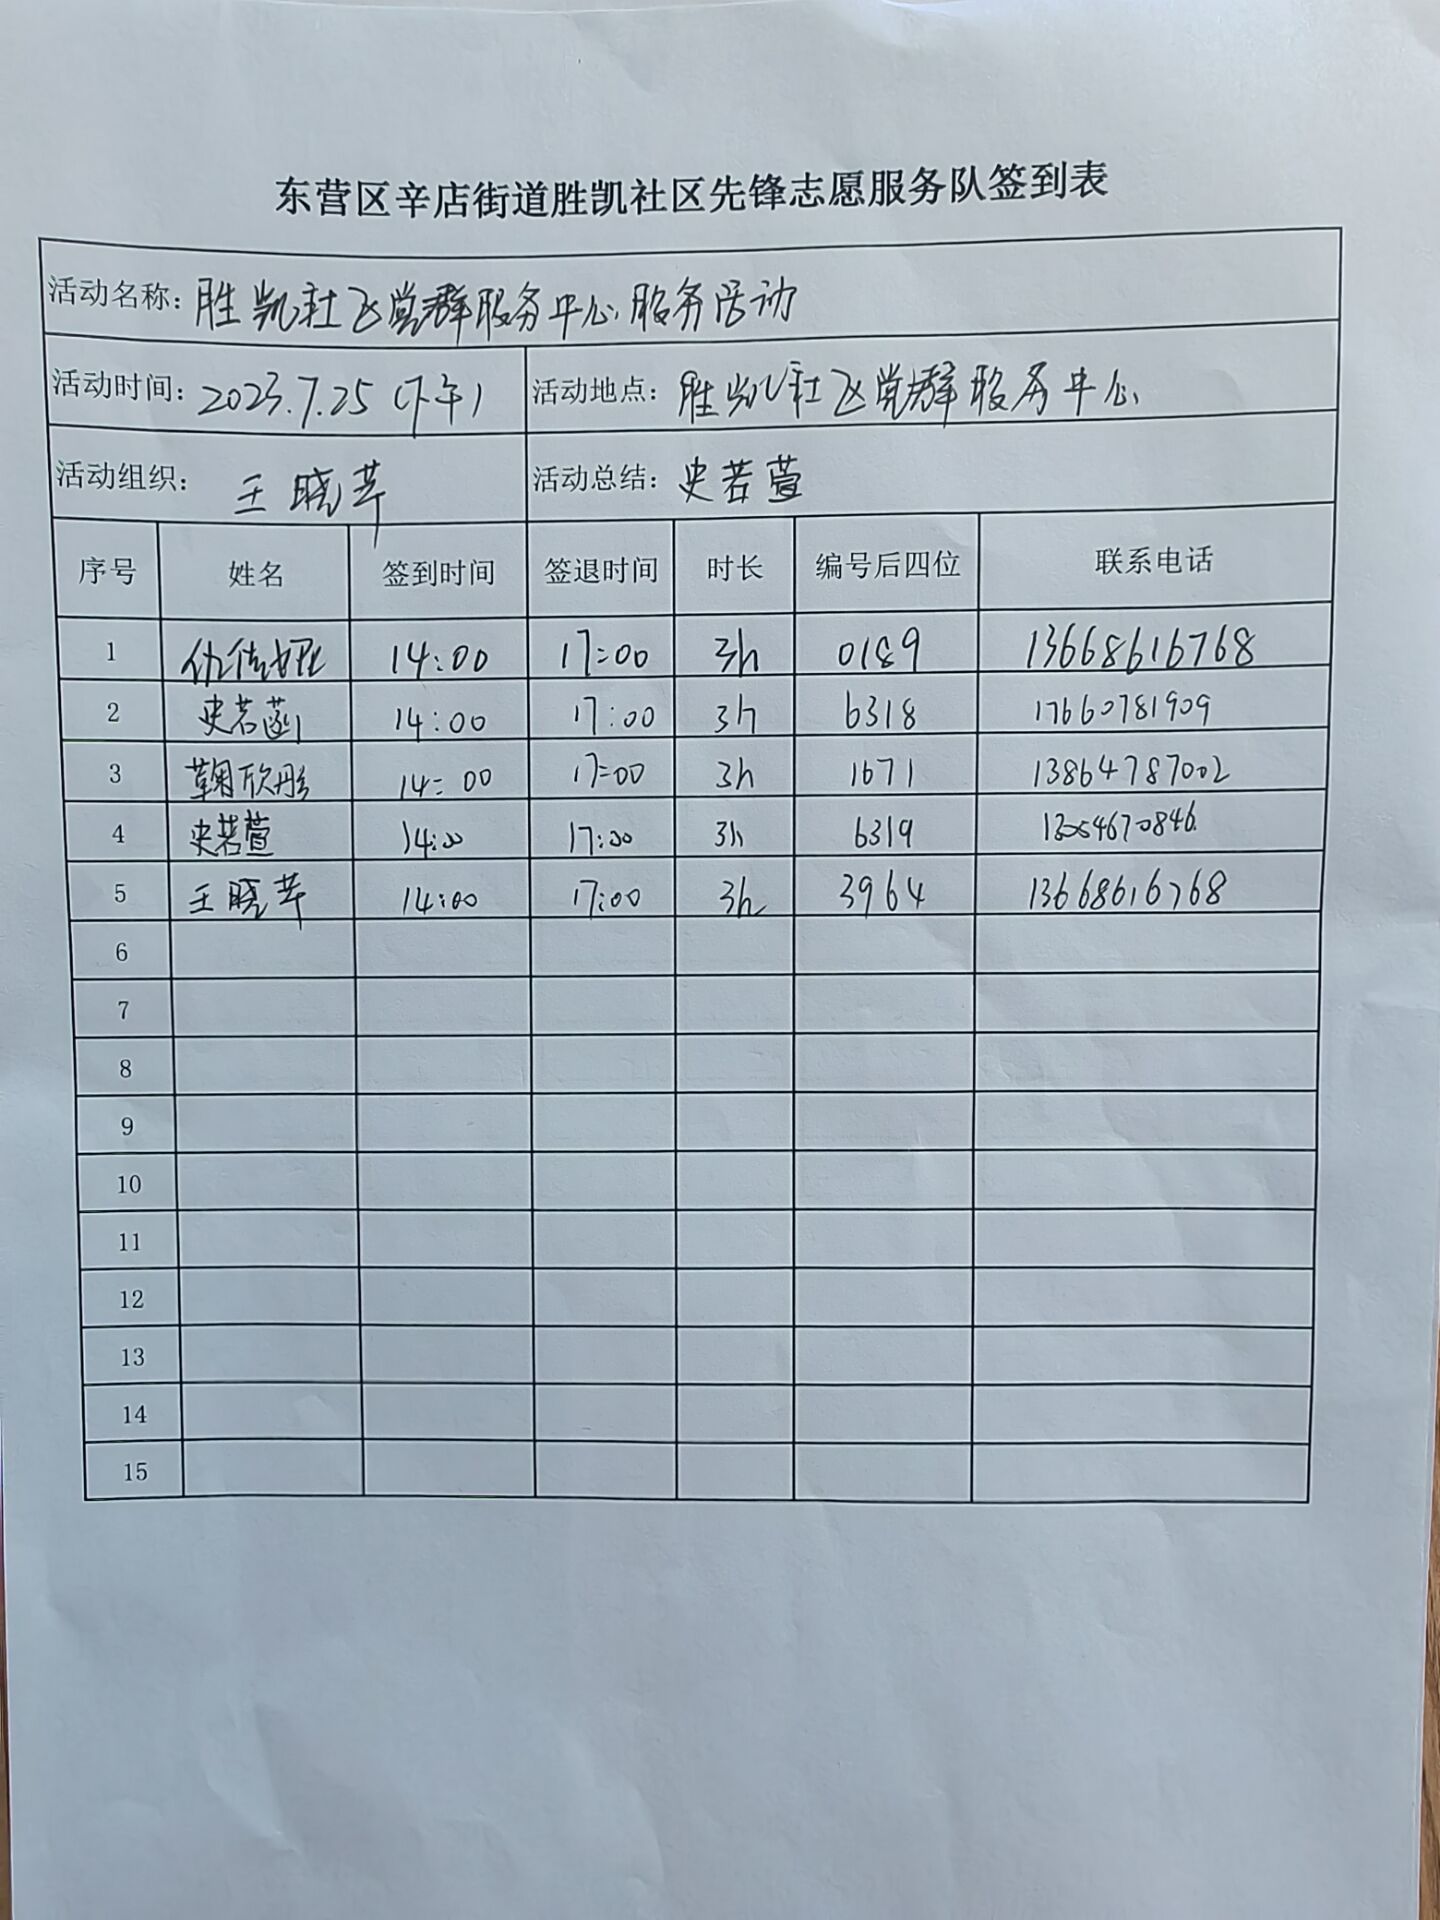 东营区辛店街道胜凯社区先锋志愿服务队签到表
活动名称：胜凯社区党群服务中心服务活动
活动时间：2023.7.25（下午） 活动地点：胜凯社区党群服务中心
活动组织：王晓苹 活动总结：史若萱
序号 姓名 签到时间 签退时间 时长 编号后四位 联系电话
1 14:00 17:00 3h 0189 13668616768
2 史若菡 14:00 17:00 3h 6318 17660781909
3 鞠欣彤 14:00 17:00 3h 1671 13864787002
4 史若萱 14:00 17:00 3h 6319
5 王晓苹 14:00 17:00 3h 3964 13668616768
6
7
8
9
10
11
12
13
14
15